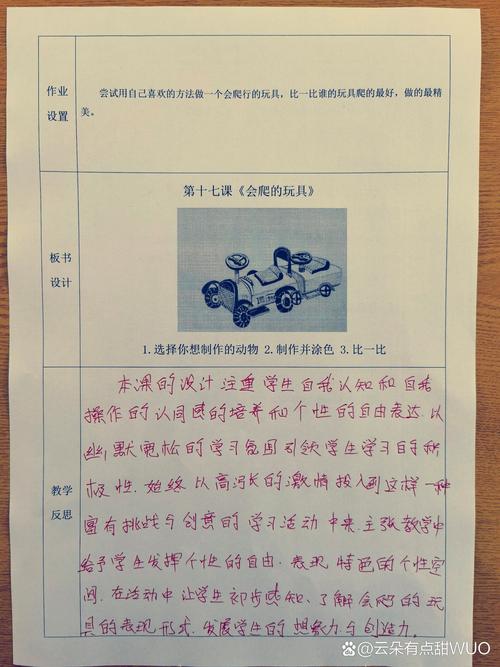 作业
设置
尝试用自己喜欢的方法做一个会爬行的玩具，比一比谁的玩具爬的最好，做的最精
美。
第十七课《会爬的玩具》
板书
设计
1.选择你想制作的动物 2.制作并涂色 3.比一比
教学
反思
本课的设计注重学生自我认知和自我
操作的认同感的培养和个性的自由表达.以
幽默宽松的学习氛围引领学生学习的积
极性.始终以高涨的激情投入到这样一种
富有挑战与创意的学习活动中来.主张教学中
给予学生发挥个性的自由.表现特色的个性空
间.在活动中让学生初步感知、了解会爬的玩
具的表现形式.发展学生的想象力与创造力.
@云朵有点甜WUO